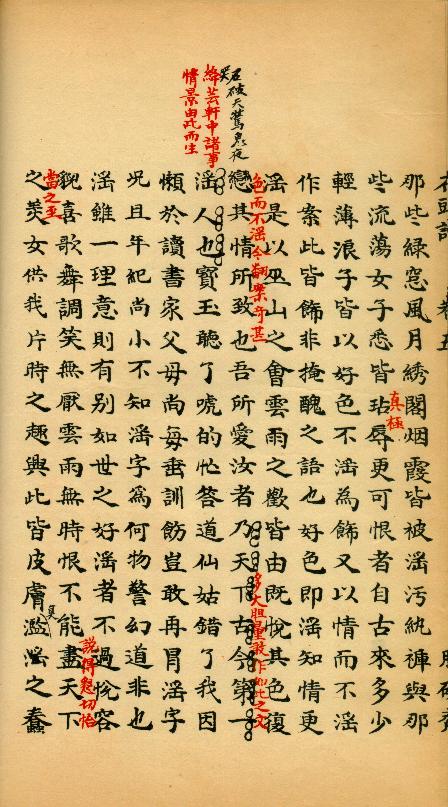 那些綠窓風月綉閣烟霞皆被滛污紈褲與那
些流蕩女子悉皆玷辱更可恨者自古來多少
真極
輕薄浪子皆以好色不滛為飾又以情而不滛
作案此皆飾非掩醜之語也好色即滛知情更
滛是以巫山之會雲雨之歡皆由既悅其色復
色而不滛今翻案奇甚
多大胆量敢作如此之文
戀其情所致也吾所愛汝者乃天下古今第一
石破天驚鬼夜
哭
絳芸軒中諸事
情景由此而生
滛人也寶玉聽了唬的忙答道仙姑錯了我因
懶於讀書家父母尚每垂訓飭豈敢再冒滛字
况且年紀尚小不知滛字為何物警幻道非也
滛雖一理意則有别如世之好滛者不過悅容
說得懇切恰
當之至
貌喜歌舞調笑無厭雲雨無時恨不能盡天下
之美女供我片時之趣興此皆皮膚濫滛之蠢